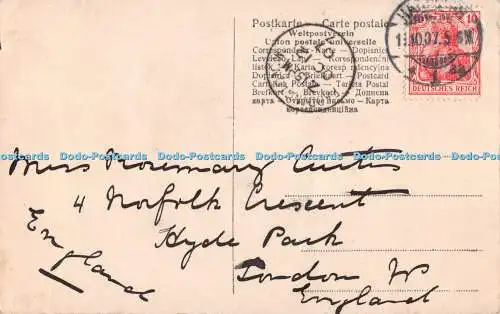 Postkarte - Carte postale
Weltpostverein
Union postale universelle
Correspondenz-Karte - Dopisnica
Levelező-Lap -
listek - Karta korespondencyjna
Dopisnica - Briefkaart - Postcard
Cartolina Postale - Tarjeta Postal
Brefkort - Brevkort - Дописна
карта - Открытое письмо - Карта
кореспонденційна
10 10
DEUTSCHES REICH
Dodo-Postcards Dodo-Postcards Dodo-Postcards Dodo-Postcards Dodo-Postcards
Miss Rosemary Curtis
4 Norfolk Crescent
Hyde Park
London W
England
England